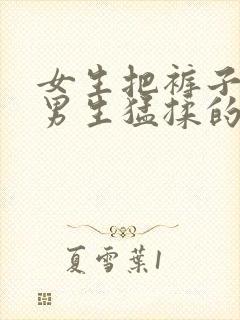 女生把裤子
男生猛揉的
夏雪葉1